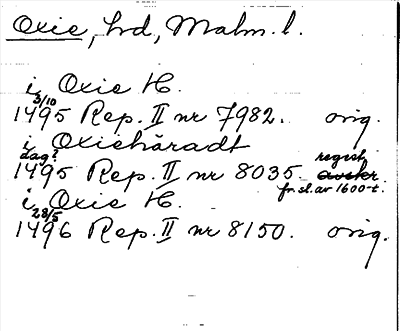 Oxie, hrd, Malm. l.
i Oxie H.
3/10
1495 Rep. II nr 7982. orig.
i Oxiehäradt
dag? regist
1495 Rep. II nr 8035
fr. sl. av 1600-t.
i Oxie H.
28/5
1496 Rep. II nr 8150. orig.